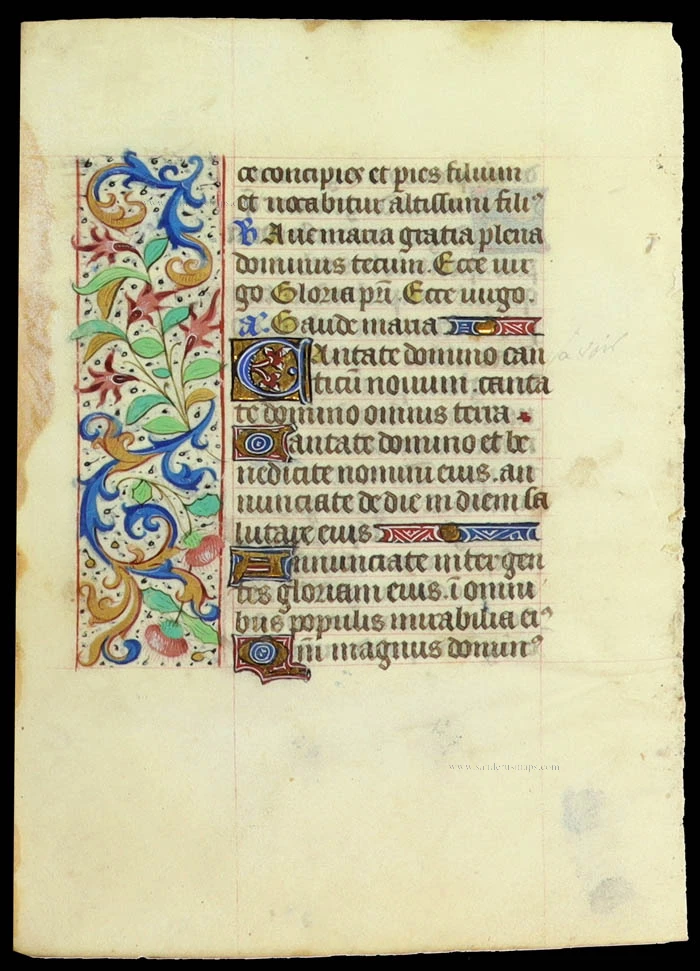 ce concipies et paries filium
et vocabitur altissimi fili⁹
℟ Aue maria gratia plena
dominus tecum. Ecce uir
go Gloria pr̄i. Ecce uirgo.
añ. Gaude maria
Cantate domino can
ticū nouum. canta
te domino omnis terra
Cantate domino et be
nedicite nomini eius. an
nunciate de die in diem sa
lutare eius
Annunciate inter gen
tes gloriam eius. ī omni
bus populis mirabilia ei⁹
Qm̄ magnus domin⁹
www.sanderusmaps.com